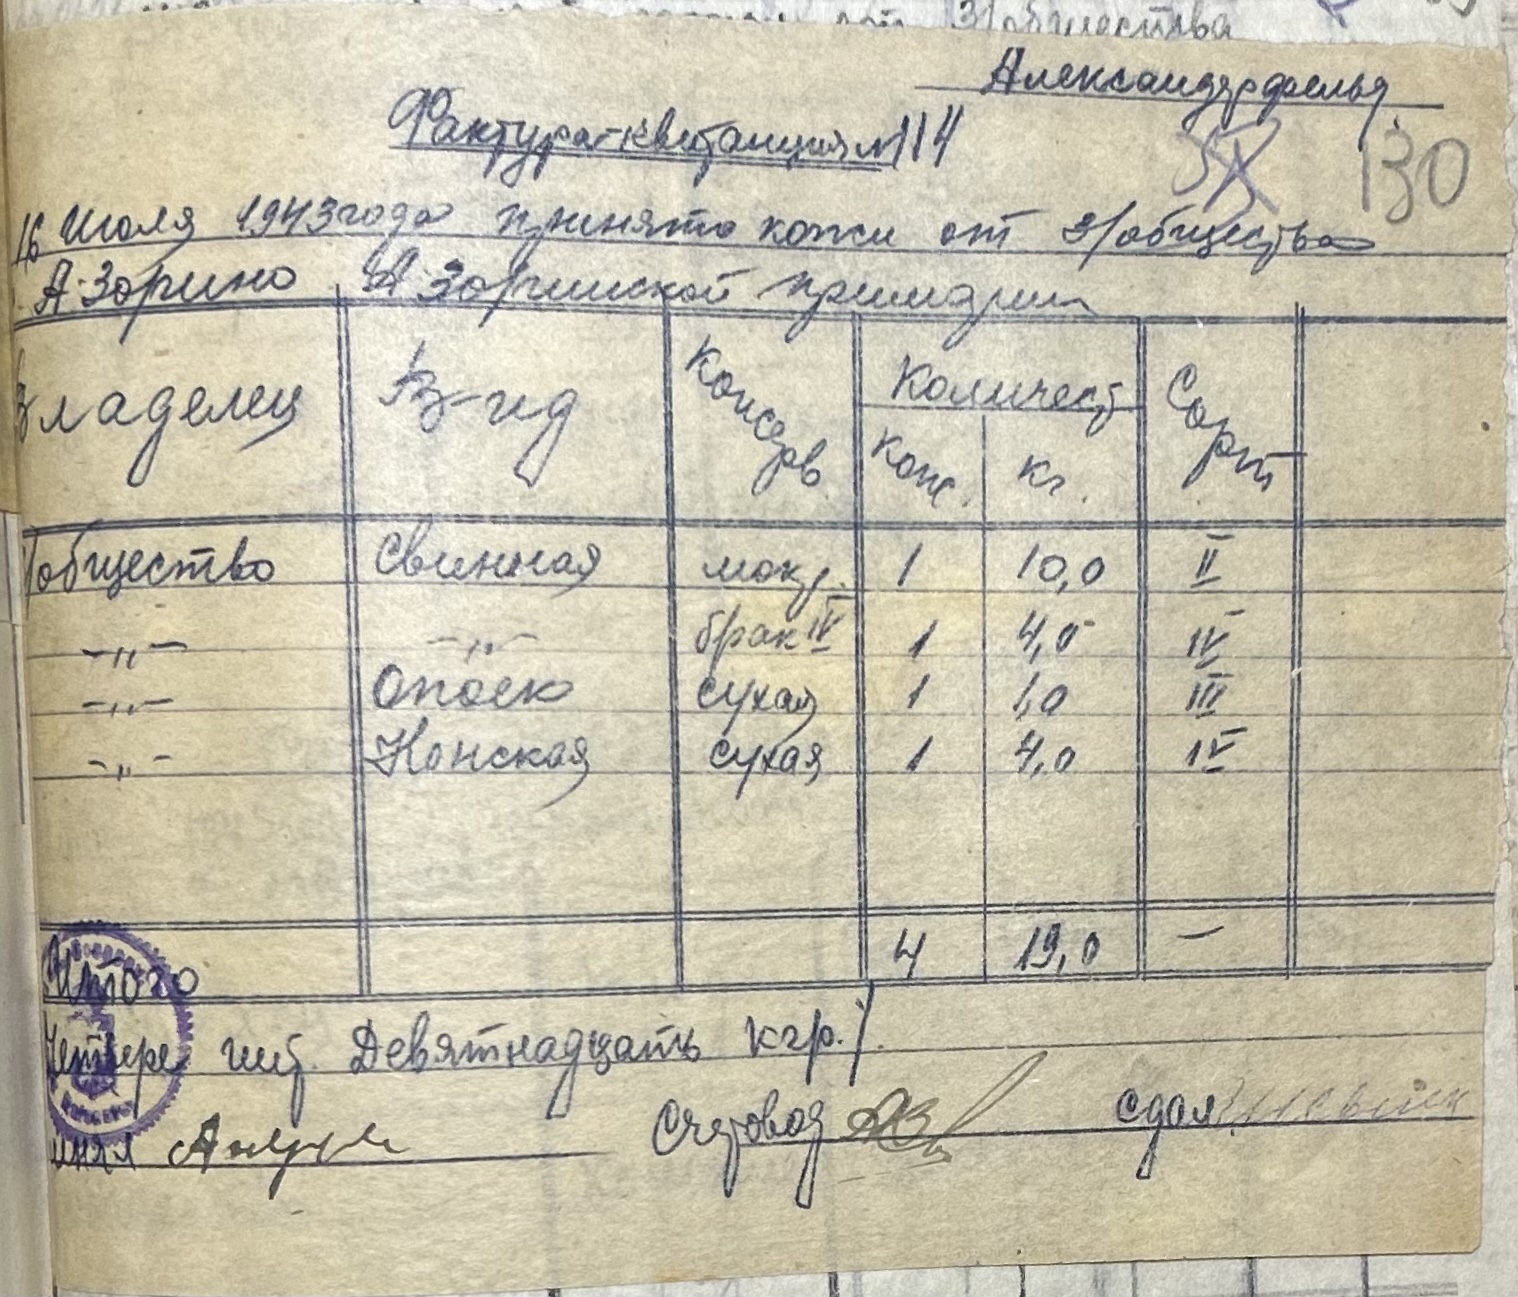 з/общества
Александрфельд
Фактура-квитанция №114
130
16 Июля 1943 года принято кожи от з/общества
А-Зорино А-Зоринской примарии
Владелец В-ид Консерв Количест Сорт
Кож. кг.
/общество Свинная мокр. 1 10,0 II
-"- -"- брак IV 1 4,0 IV
-"- Опоек сухая 1 1,0 III
-"- Конская сухая 1 4,0 IV
Итого 4 19,0 —
Четыре шт. Девятнадцать кгр./
инял Счетовод Сдал